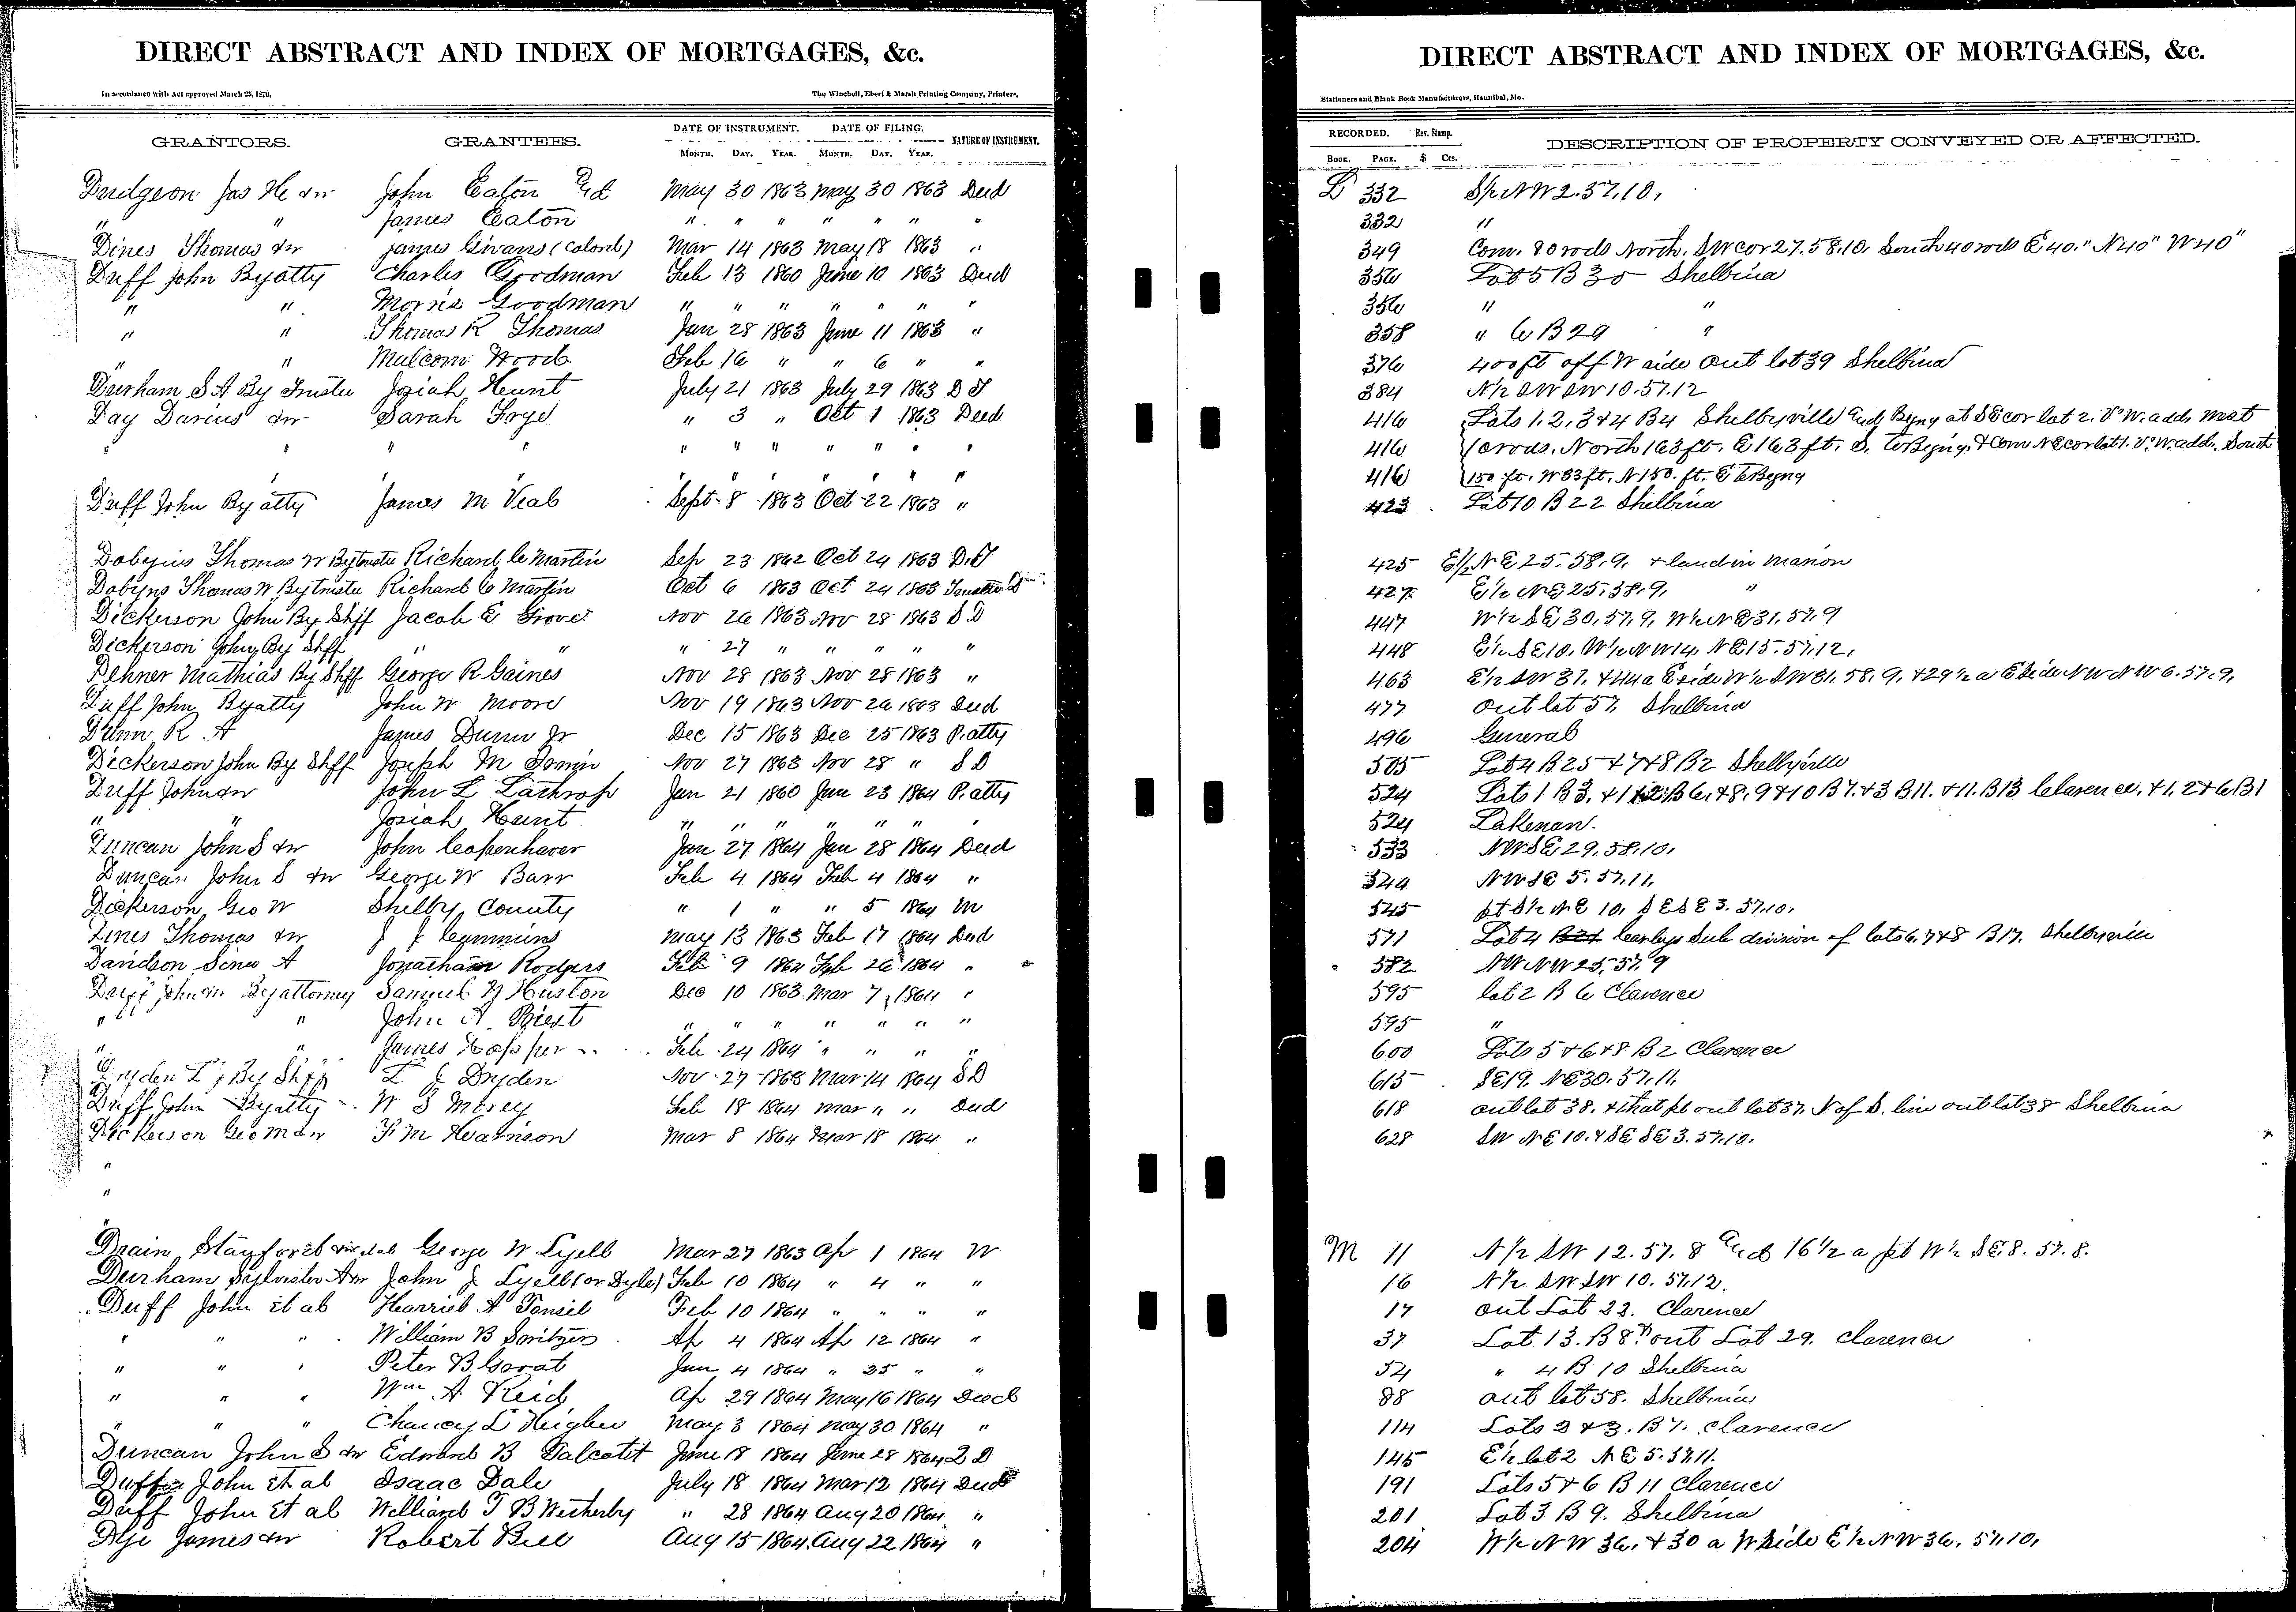 DIRECT ABSTRACT AND INDEX OF MORTGAGES, &c.
In accordance with Act approved March 25, 1870. The Winchell, Ebert & Marsh Printing Company, Printers,
GRANTORS. GRANTEES. DATE OF INSTRUMENT. DATE OF FILING. NATURE OF INSTRUMENT.
MONTH. DAY. YEAR. MONTH. DAY. YEAR.
Dudgeon Jas H & wf John Eaton May 30 1863 May 30 1863 Deed
" " James Eaton " " " " " " "
Dines Thomas & w James Givans (Colored) Mar 14 1863 May 18 1863 "
Duff John By atty Charles Goodman Feb 13 1860 June 10 1863 Deed
" " Morris Goodman " " " " " " "
" " Thomas R Thomas Jan 28 1863 June 11 1863 "
" " Malcom Wood Feb 16 " " 6 " "
Durham S A By Trustee Josiah Hunt July 21 1863 July 29 1863 D T
Day Darius & w Sarah Frye " 3 " Oct 1 1863 Deed
" " " " " " " " " "
" " " " " " " " " "
Duff John By atty James M Veal Sept 8 1863 Oct 22 1863 "
Dobyns Thomas W By trustee Richard C Martin Sep 23 1862 Oct 24 1863 D.T
Dobyns Thomas W. By trustee Richard C Martin Oct 6 1863 Oct 24 1863
Dickerson John By Shff Jacob E Grove Nov 26 1863 Nov 28 1863 S D
Dickerson John By Shff " " " 27 " " " " "
Dehner Mathias By Shff George R Gaines Nov 28 1863 Nov 28 1863 "
Duff John By atty John W Moore Nov 19 1863 Nov 26 1863 Deed
Dunn R A James Dunn Jr Dec 15 1863 Dec 25 1863 P. atty
Dickerson John By Shff Joseph M Nov 27 1863 Nov 28 " S D
Duff John & w John L Lathrop Jan 21 1860 Jan 23 1864 P. atty
" " Josiah Hunt " " " " " " "
Duncan John S & w John Copenhaver Jan 27 1864 Jan 28 1864 Deed
Duncan John S & w George W Barr Feb 4 1864 Feb 4 1864 "
Dickerson Geo W Shelby County " 1 " " 5 1864 M
Dines Thomas & w J J Cummins May 13 1863 Feb 17 1864 Deed
Davidson A Jonathan Rodgers Feb 9 1864 Feb 26 1864 "
Duff John By attorney Samuel N Huston Dec 10 1863 Mar 7, 1864 "
" " John A. Biest " " " " " " "
" " James Hopper Feb 24 1864 " " " "
Dryden L J By Shff L J Dryden Nov 27 1863 Mar 14 1864 S D
Duff John By atty W S Morey Feb 18 1864 Mar " " Deed
Dickerson Geo M & w F. M Harrison Mar 8 1864 Mar 18 1864 "
"
"
"
Drain Stanford et al George W. Lyell Mar 27 1863 Ap 1 1864 W
Durham Sylvester A & w John J Lyell (or Dyle) Feb 10 1864 " 4 " "
Duff John et al Harriet A Tonsil Feb 10 1864 " " " "
" " " William B Switzer Ap 4 1864 Ap 12 1864 "
" " " Peter B Jan 4 1864 " 25 " "
" " " Wm A Reid Ap 29 1864 May 16 1864 Deed
" " " Chancy L May 3 1864 May 30 1864 "
Duncan John S & w Edmond B Talcott June 18 1864 June 28 1864
Duff John et al Isaac Dale July 18 1864 Mar 12 1864 Deed
Duff John et al Willard T B Wetherby " 28 1864 Aug 20 1864 "
Dye James & w Robert Bell Aug 15 1864 Aug 22 1864 "
DIRECT ABSTRACT AND INDEX OF MORTGAGES, &c.
Stationers and Blank Book Manufacturers, Hannibal, Mo.
RECORDED. Rev. Stamp. DESCRIPTION OF PROPERTY CONVEYED OR AFFECTED.
BOOK. PAGE. $ Cts.
L 332 S½ NW 2.57.10,
332 "
349 Com. 80 rods North. SW cor 27.58.10, South 40 rods E 40." N 40" W 40"
356 Lot 5 B 30 Shelbina
356 " "
358 " 6 B 29 "
376 400 ft off W side out lot 39 Shelbina
384 N½ SW SW 10.57.12
416 Lots 1.2.3 & 4 B 4 Shelbyville and Begng at SE cor lot 2. V W. add, West
416 10 rods. North 163 ft. E 163 ft. S. to Begng. & Com NE cor lot 1. V. W. add. South
416 150 ft. W 83 ft. N 150. ft. E to Begng
423 Lot 10 B 22 Shelbina
425 E½ NE 25.58.9. & land in Marion
427 E½ NE 25.58.9, "
447 W½ SE 30.57.9, W½ NE 31.57.9
448 E½ SE 10, W½ NW 14. NE 15.57.12,
463 E½ SW 31. & 44 a E side W½ SW 31.58.9. & 29½ a E side NW NW 6.57.9,
477 Out lot 57. Shelbina
496 General
505 Lot 4 B 25 & 7 & 8 B 2 Shelbyville
524 Lots 1 B 3. & 1 & 2 B 6, & 8, 9 & 10 B 7. & 3 B 11. & 11. B 13 Clarence, & 1, 2 & 6 B 1
524 Lakenan.
533 NW SE 29.58.10,
544 NW SE 5.57.11,
545 pt S½ NE 10, SE SE 3.57.10.
571 Lot 4 Sub division of lots 6, 7 & 8 B 17. Shelbyville
582 NW NW 25.57.9
595 lot 2 B 6 Clarence
595 "
600 Lots 5 & 6 & 8 B 2 Clarence
615 SE 19. NE 30.57.11.
618 Out lot 38. & that pt out lot 37. N of S. line out lot 38 Shelbina
628 SW NE 10. & SE SE 3.57.10.
M 11 N½ SW 12.57.8 and 16½ a pt W½ SE 8.57.8.
16 N½ SW SW 10.57.12.
17 out Lot 22. Clarence
37 Lot 13. B 8 & out Lot 29. Clarence
54 " 4 B 10 Shelbina
88 out lot 58. Shelbina
114 Lots 2 & 3. B 7. Clarence
145 E½ lot 2 NE 5.57.11.
191 Lots 5 & 6 B 11 Clarence
201 Lot 3 B 9. Shelbina
204 W½ NW 36, & 30 a W side E½ NW 36.57.10,